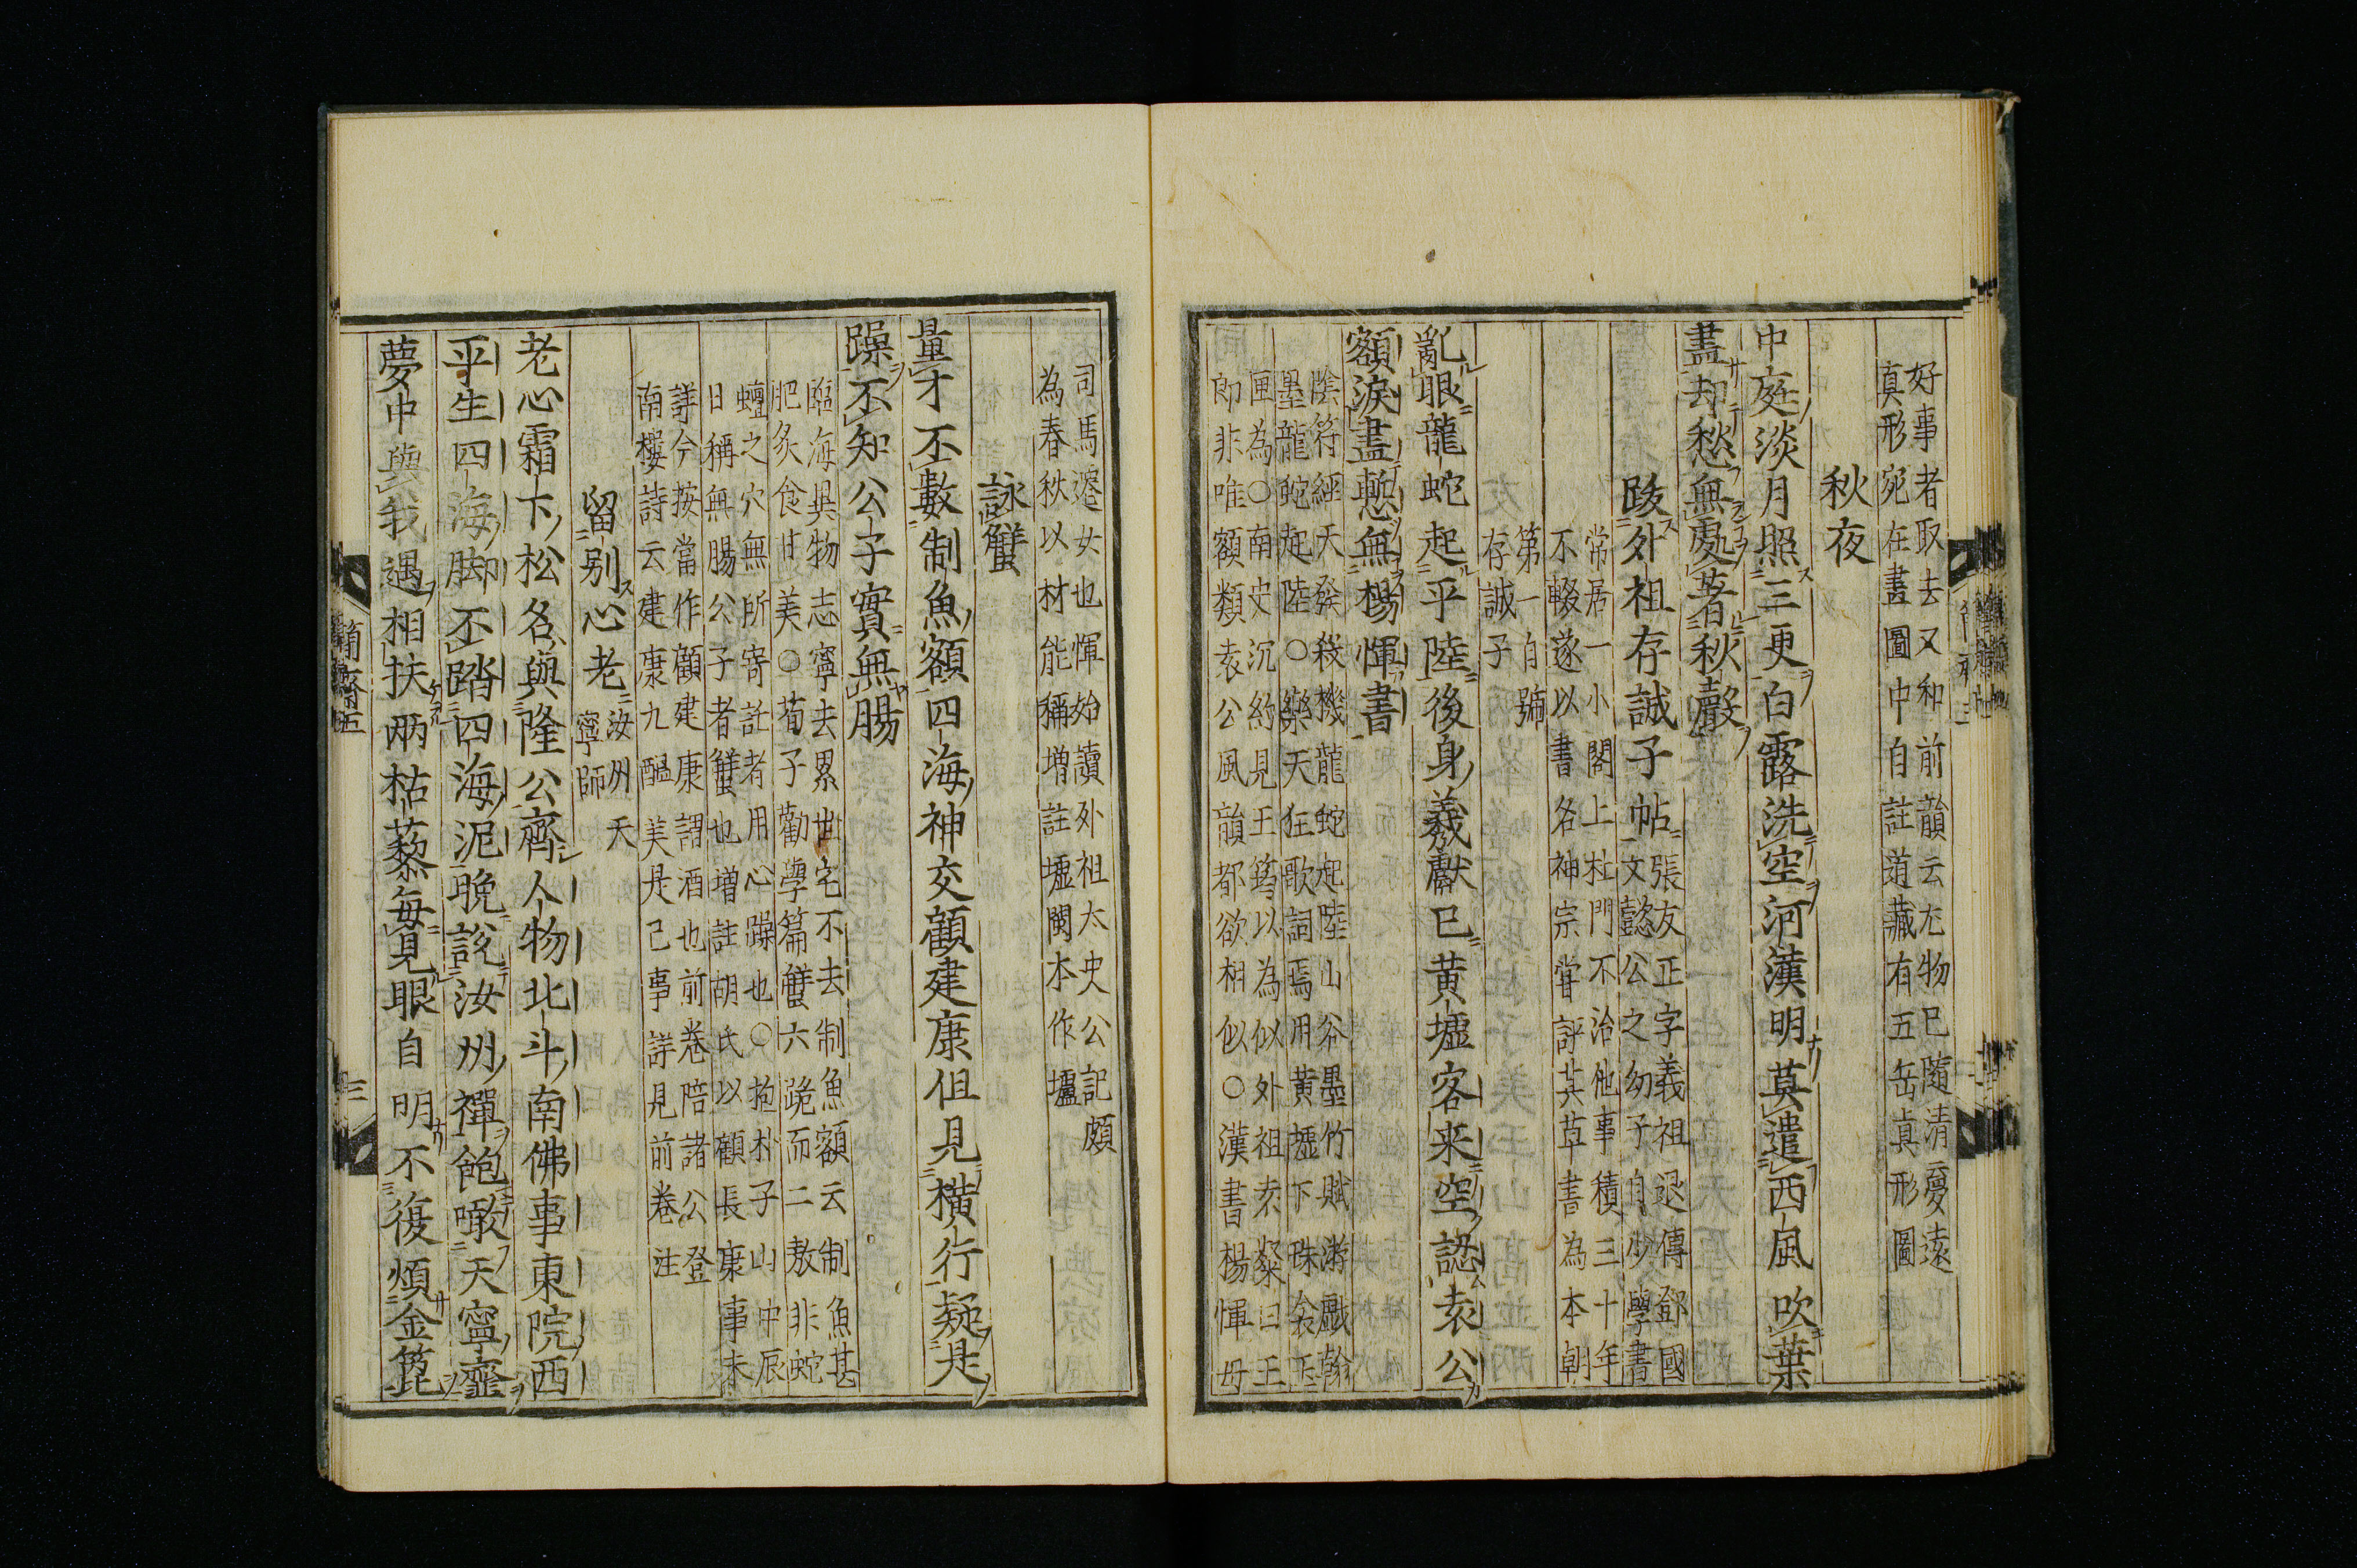 好事者取去又和前韻云尤物已隨清夢遠
真形宛在畫圖中自註道藏有五岳真形圖
秋夜
中庭淡月照三更白露洗空河漢明莫遣西風吹葉
盡却愁無處著秋聲
跋外祖存誠子帖
張友正字義祖退傅鄧國
文懿公之幼子自少學書
常居一小閣上杜門不治他事積三十年
不輟遂以書名神宗嘗評其草書為本朝
第一自號
存誠子
亂眼龍蛇起平陸後身羲獻已黃墟客来空認袁公
額淚盡慙無楊惲書
陰符經天發殺機龍蛇起陸山谷墨竹賦游戲翰
墨龍蛇起陸○樂天狂歌詞焉用黃壚下珠衾玉
匣為○南史沉約見王筠以為似外祖袁粲曰王
郎非唯額類袁公風韻都欲相似○漢書楊惲母
司馬遷女也惲始讀外祖太史公記頗
為春秋以材能稱增註墟閩本作壚
詠蟹
量才不數制魚額四海神交顧建康但見橫行疑是
躁不知公子實無腸
臨海異物志寧去累世宅不去制魚額云制魚甚
肥炙食甘美○荀子勸學篇蟹六跪而二敖非蛇
蟺之穴無所寄託者用心躁也○抱朴子山中辰
日稱無腸公子者蟹也增註胡氏以顧長康事未
詳今按當作顧建康謂酒也前卷陪諸公登
南樓詩云建康九醞美是已事詳見前卷注
留别心老
汝州天
寧師
老心霜下松名與隆公齊人物北斗南佛事東院西
平生四海脚不踏四海泥晚說汝州禪飽噉天寧虀
夢中與我遇相扶兩枯藜每見眼自明不復煩金篦
簡齋五
三